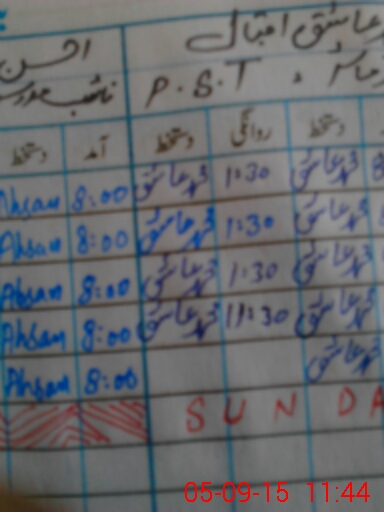 عاشق اقبال احسن
P.S.T نائب
دستخط روانگی دستخط آمد دستخط
Ahsan 8:00 محمد عاشق 1:30 محمد عاشق
Ahsan 8:00 محمد عاشق 1:30 محمد عاشق
Ahsan 8:00 محمد عاشق 1:30 محمد عاشق
Ahsan 8:00 محمد عاشق 11:30 محمد عاشق
Ahsan 8:00 محمد عاشق
SUNDA
05-09-15 11:44